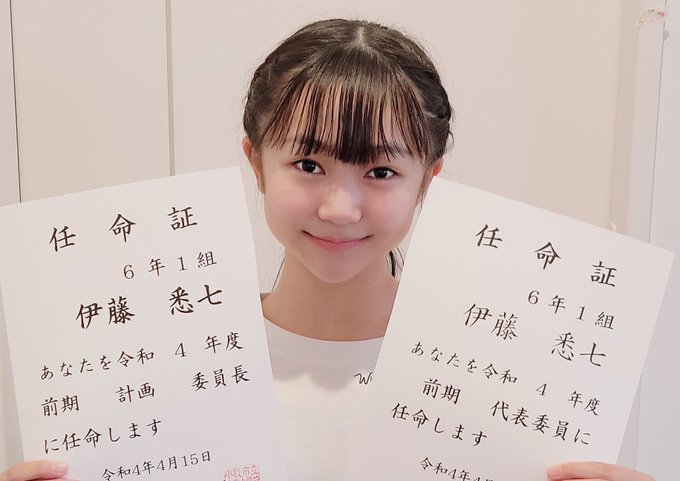 任命証
6年1組
伊藤 悉七
あなたを令和 4 年度
前期 計画 委員長
に任命します
令和4年4月15日
小牧市立
任命証
6年1組
伊藤 悉七
あなたを令和 4 年度
前期 代表委員に
任命します
令和4年4
W